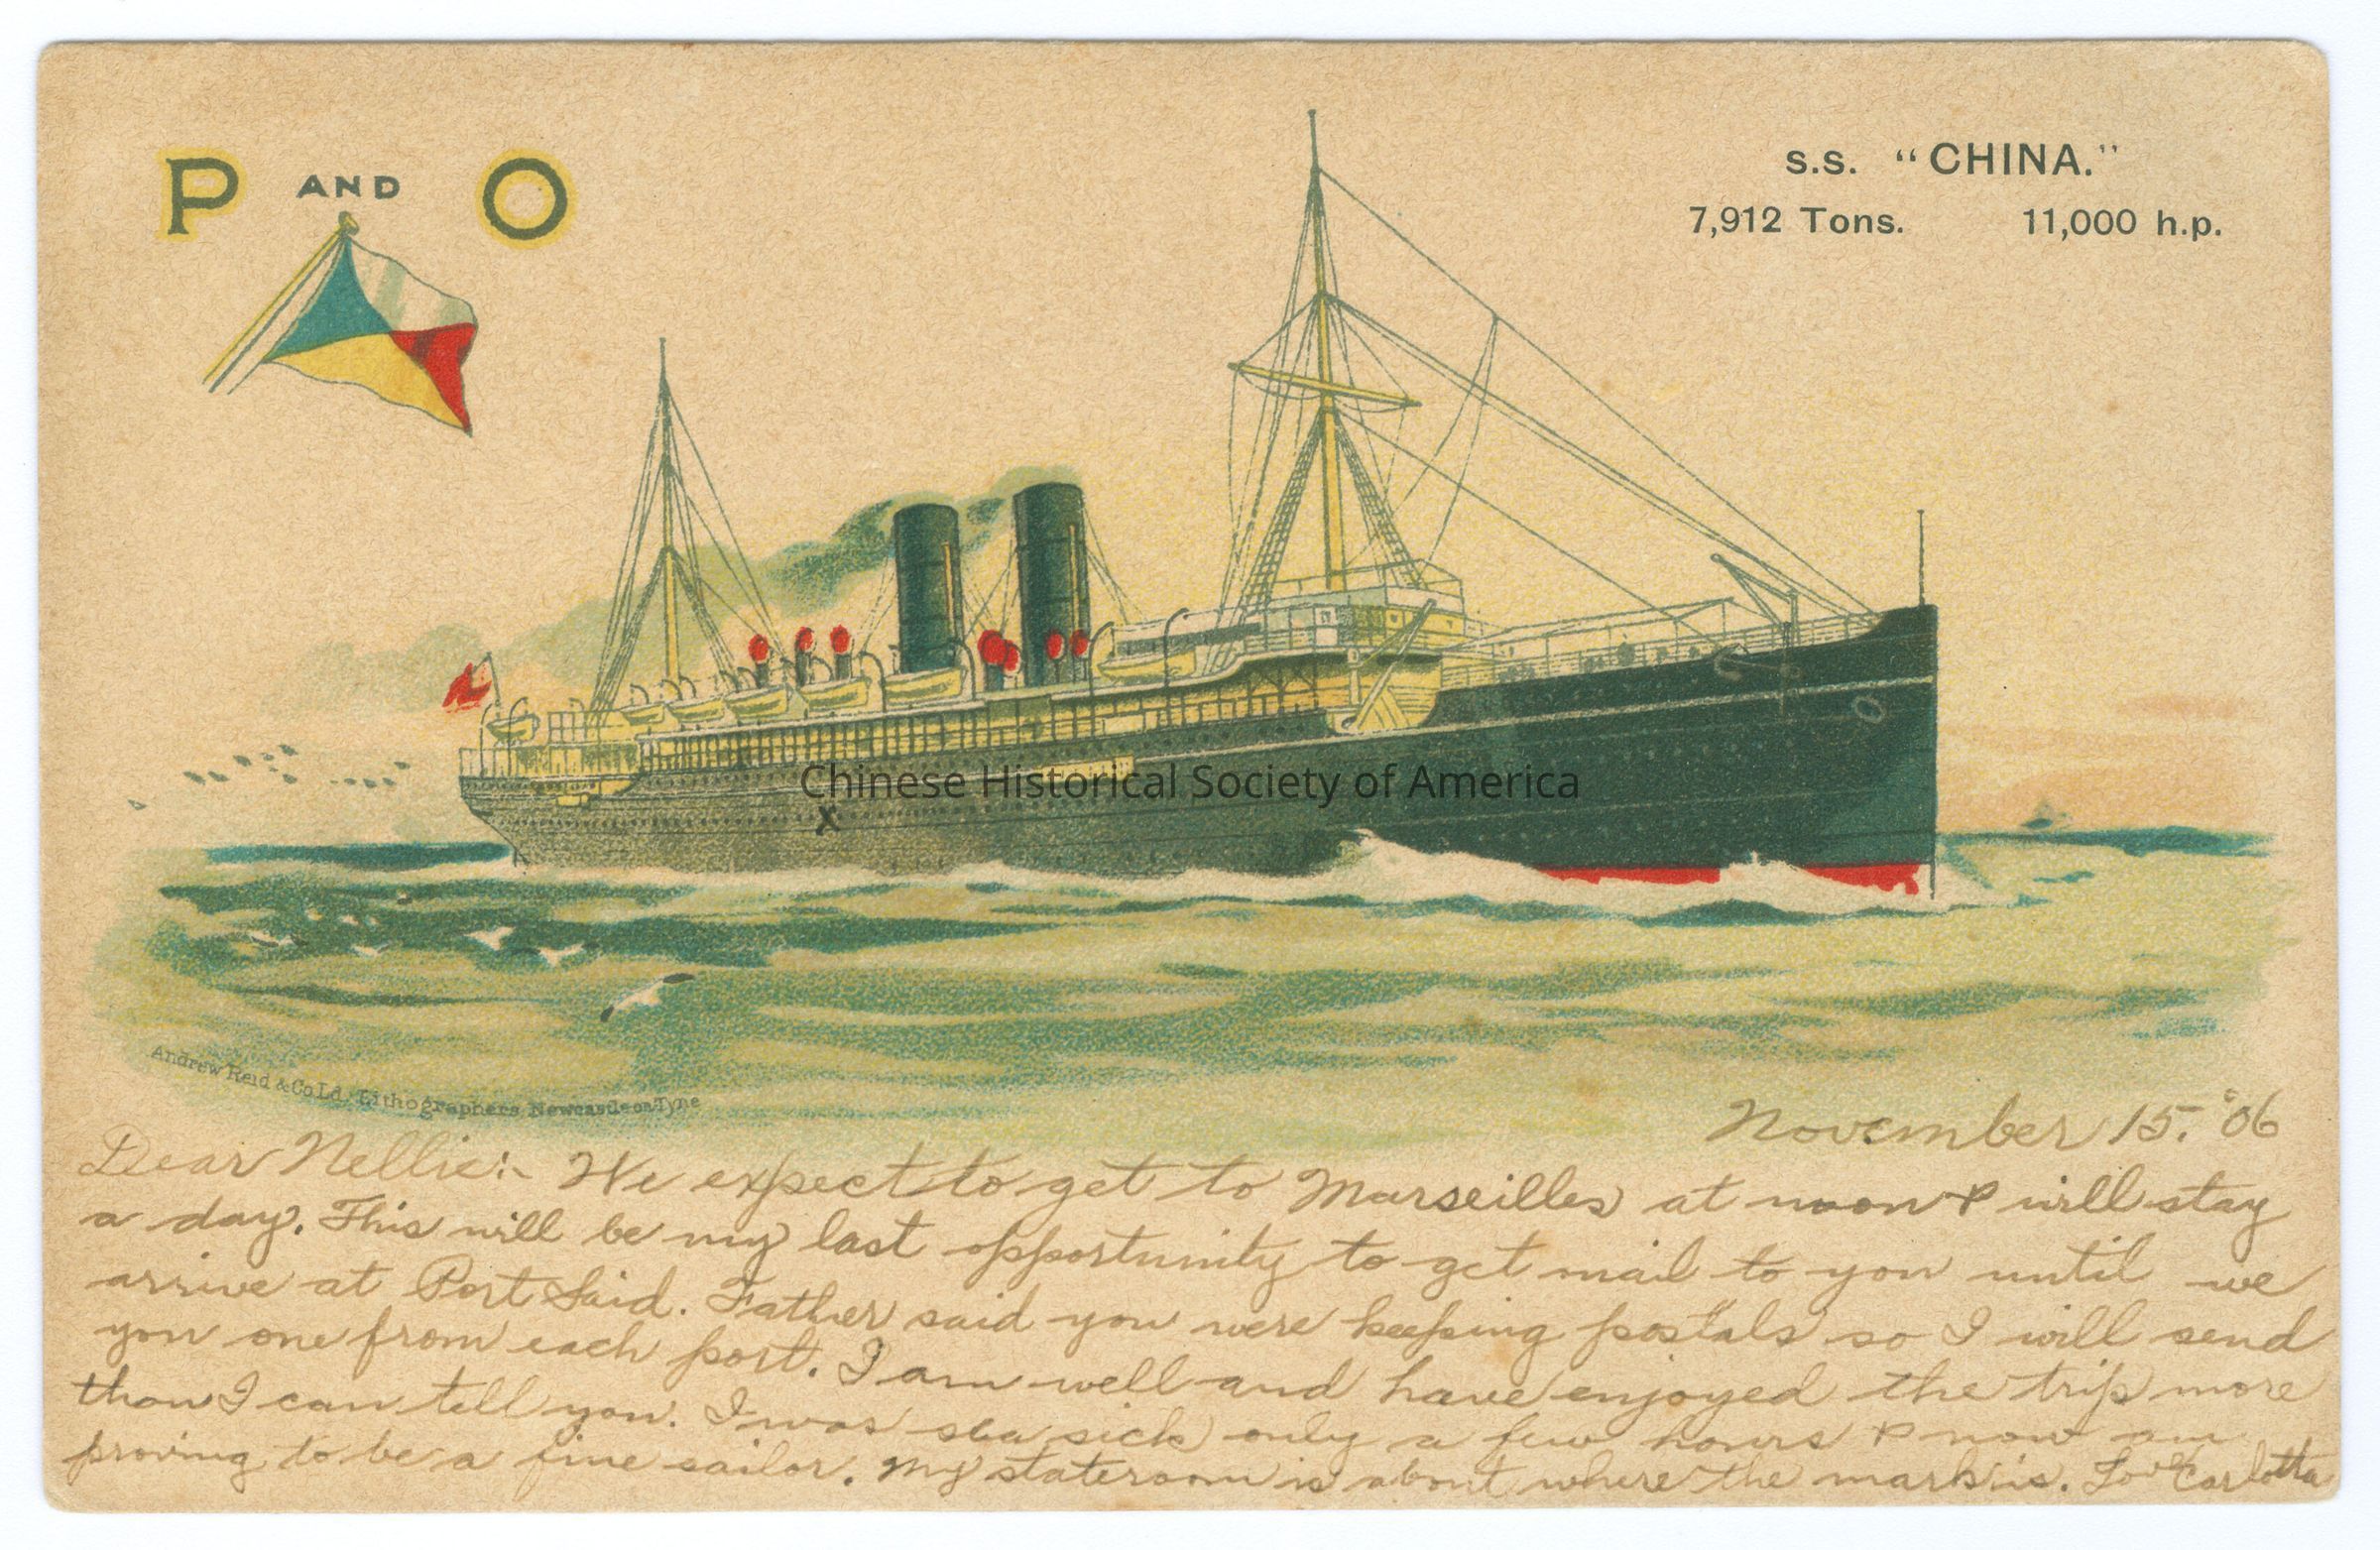 P AND O
S.S. "CHINA."
7,912 Tons. 11,000 h.p.
Chinese Historical Society of America
X
Andrew Reid & Co Ld. Lithographers Newcastle on Tyne
November 15. '06
Dear Nellie:- We expect to get to Marseilles at noon & will stay
a day. This will be my last opportunity to get mail to you until we
arrive at Port Said. Father said you were keeping postals so I will send
you one from each port. I am well and have enjoyed the trip more
than I can tell you. I was sea sick only a few hours & now am
proving to be a fine sailor. My stateroom is about where the mark is. Love Carlotta